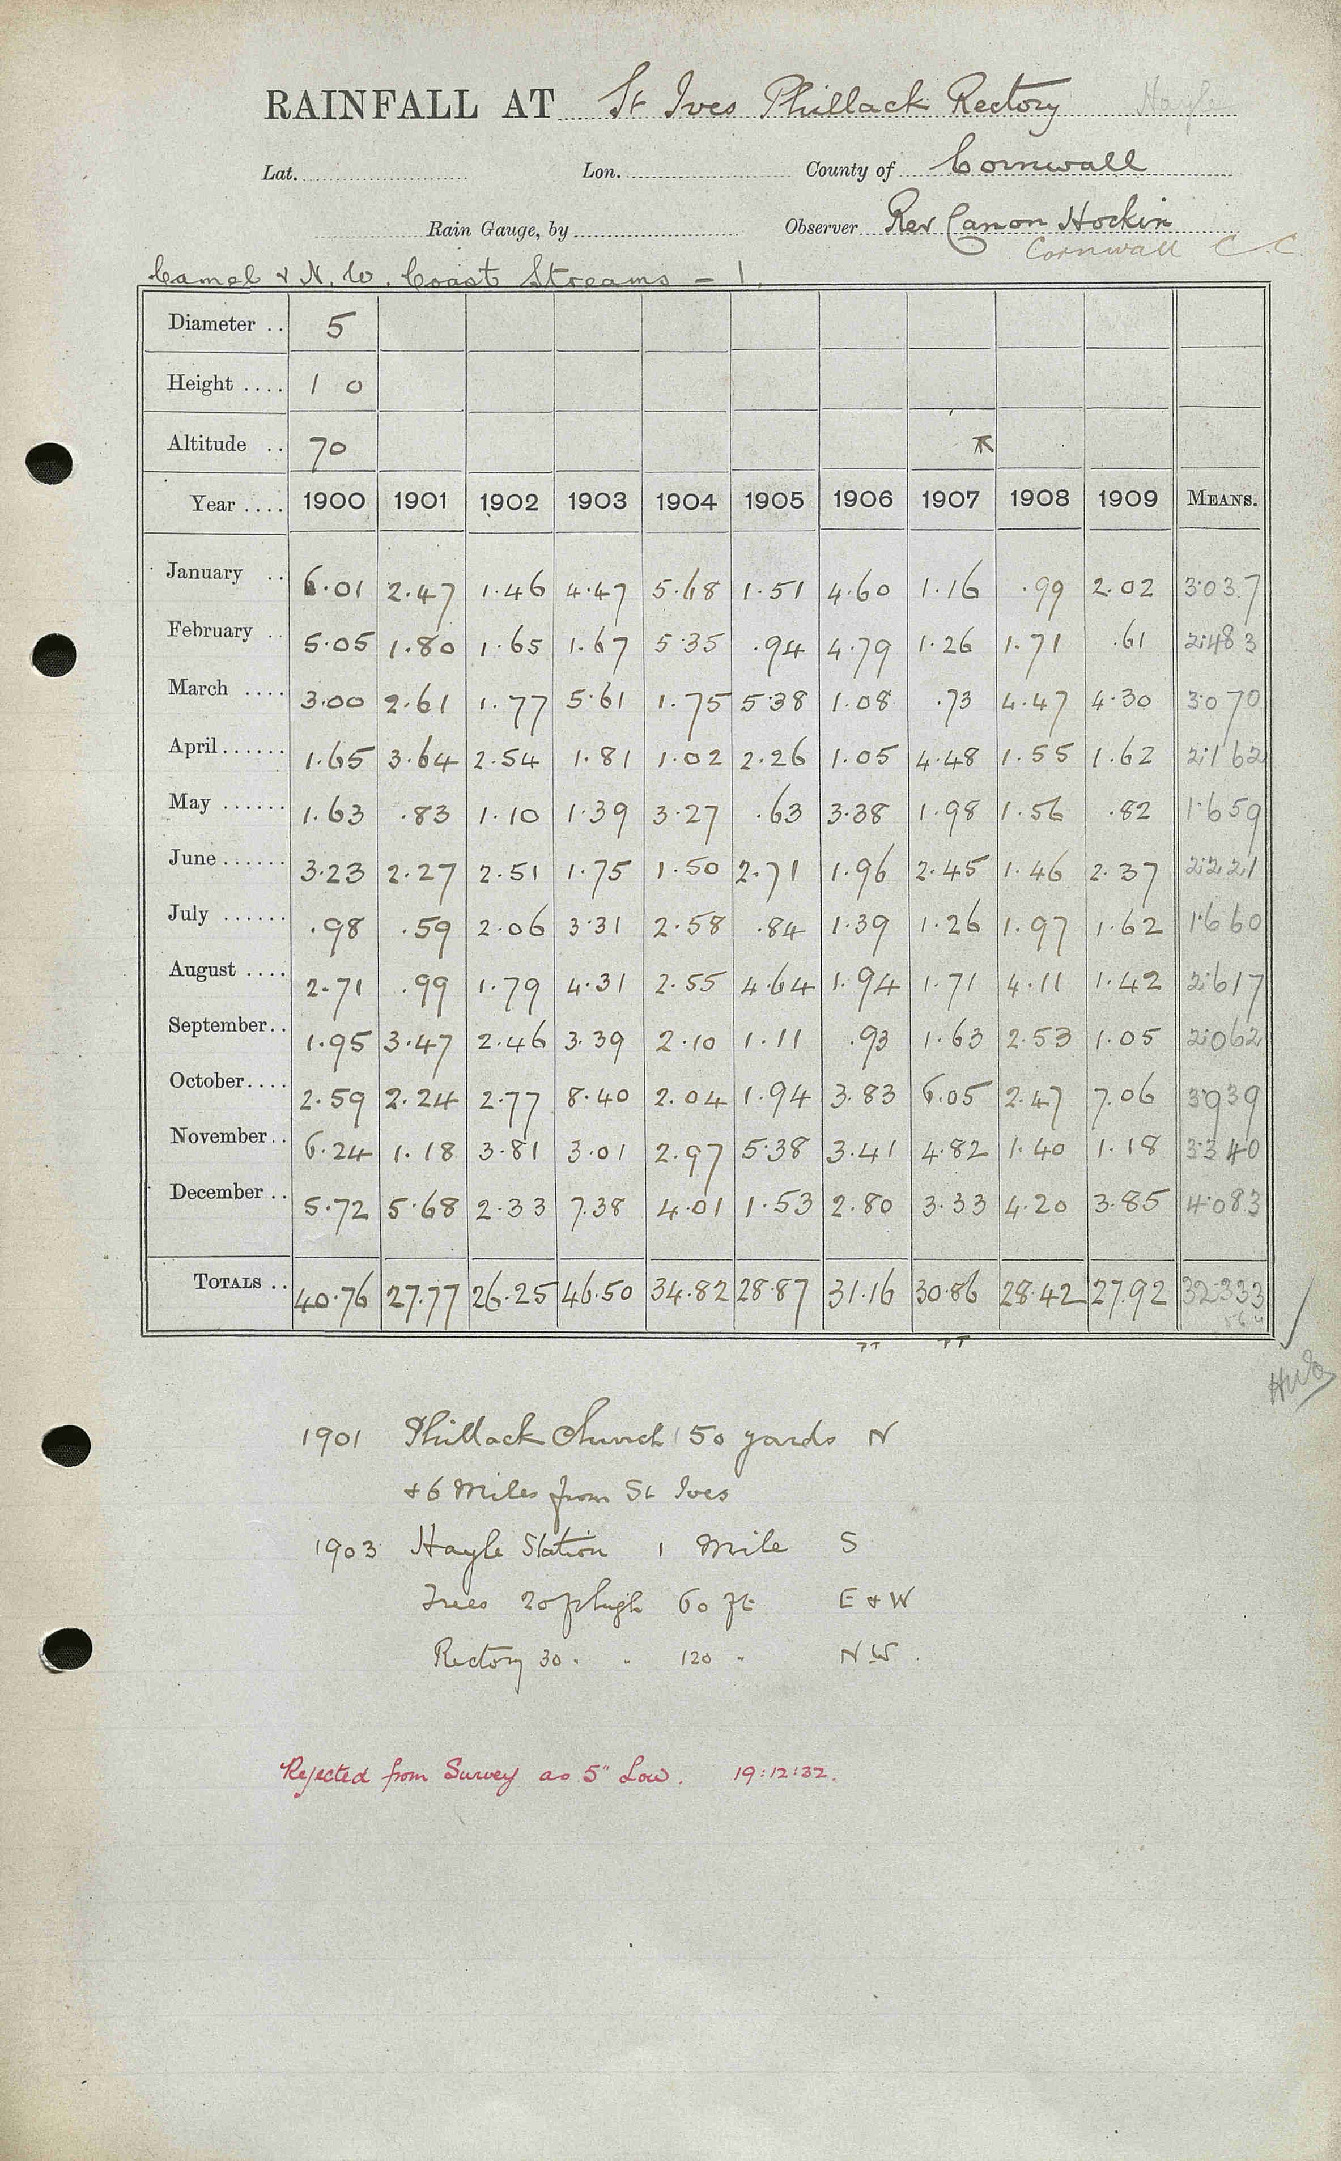 RAINFALL AT St Ives Phillack Rectory Hayle
Lat. Lon. County of Cornwall
Rain Gauge, by Observer Rev Canon Hockin
Cornwall C.C.
Camel & N.W. Coast Streams - 1.
Diameter .. 5
Height .... 1 0
Altitude .. 70
Year .... 1900 1901 1902 1903 1904 1905 1906 1907 1908 1909 MEANS.
January .. 6.01 2.47 1.46 4.47 5.68 1.51 4.60 1.16 .99 2.02 3.037
February .. 5.05 1.80 1.65 1.67 5.35 .94 4.79 1.26 1.71 .61 2.483
March .... 3.00 2.61 1.77 5.61 1.75 5.38 1.08 .73 4.47 4.30 3.070
April...... 1.65 3.64 2.54 1.81 1.02 2.26 1.05 4.48 1.55 1.62 2.162
May ...... 1.63 .83 1.10 1.39 3.27 .63 3.38 1.98 1.56 .82 1.659
June...... 3.23 2.27 2.51 1.75 1.50 2.71 1.96 2.45 1.46 2.37 2.221
July ...... .98 .59 2.06 3.31 2.58 .84 1.39 1.26 1.97 1.62 1.660
August .... 2.71 .99 1.79 4.31 2.55 4.64 1.94 1.71 4.11 1.42 2.617
September.. 1.95 3.47 2.46 3.39 2.10 1.11 .93 1.63 2.53 1.05 2.062
October.... 2.59 2.24 2.77 8.40 2.04 1.94 3.83 6.05 2.47 7.06 3.939
November.. 6.24 1.18 3.81 3.01 2.97 5.38 3.41 4.82 1.40 1.18 3.340
December .. 5.72 5.68 2.33 7.38 4.01 1.53 2.80 3.33 4.20 3.85 4.083
TOTALS .. 40.76 27.77 26.25 46.50 34.82 28.87 31.16 30.86 28.42 27.92 32.333
1901 Phillack Church 150 yards N
& 6 Miles from St Ives
1903 Hayle Station 1 Mile S
Trees 20 ft high 60 ft E & W
Rectory 30 " " 120 " N.W.
Rejected from Survey as 5" Low. 19:12:32.